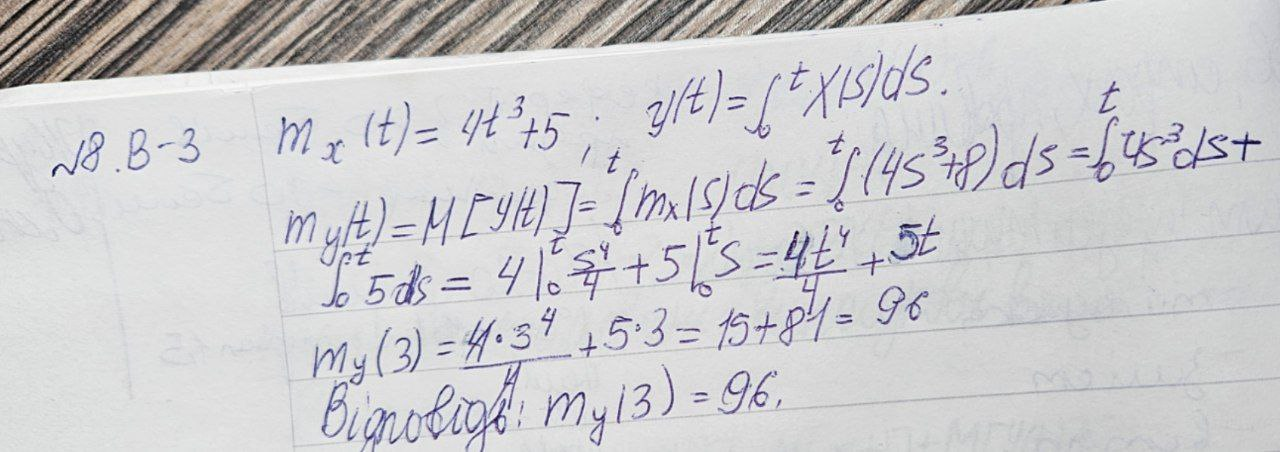 √8.В-3 m_x(t) = 4t³+5; y(t) = ∫₀ᵗ X(s)ds.
m_y(t) = M[Y(t)] = ∫₀ᵗ m_x(s)ds = ∫₀ᵗ (4s³+8)ds = ∫₀ᵗ 4s³ds +
∫₀ᵗ 5ds = 4|₀ᵗ s⁴/4 + 5|₀ᵗ s = 4t⁴/4 + 5t
m_y(3) = 4·3⁴/4 + 5·3 = 15+81 = 96
Відповідь: m_y(3) = 96.